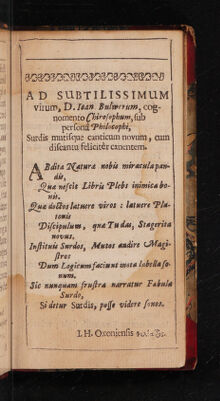 AD SUBTILISSIMUM
virum, D. Ioan Bulwerum, cog-
nomento Chirosophum, sub
persona Philosophi,
Surdis mutisque canticum novum, cum
discantu feliciter canentem.
ABdita Naturæ nobis miracula pan-
dis,
Quæ nescit Libris Plebs inimica bo-
nis.
Quæ doctos latuere viros: latuere Pla-
tonis
Discipulum, quæ Tu das, Stagerita
novus.
Instituis Surdos, Mutos audire Magi-
stros
Dum Logicum faciunt mota labella so-
num.
Sic nunquam frustra narratur Fabula
Surdo,
Si detur Surdis, posse videre sonos.
I. H. Oxoniensis